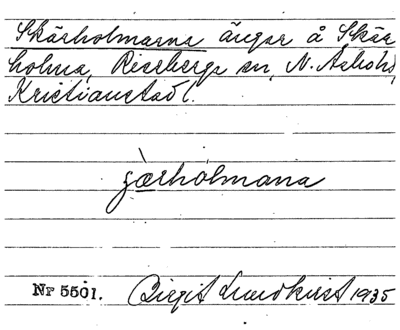 Skärholmarna ängar å Skär
holma, Riseberga sn, N. Åsbohd,
Kristianstad l.
s̀kærhólmana
Nr 5501. Birgit Lundkvist 1935